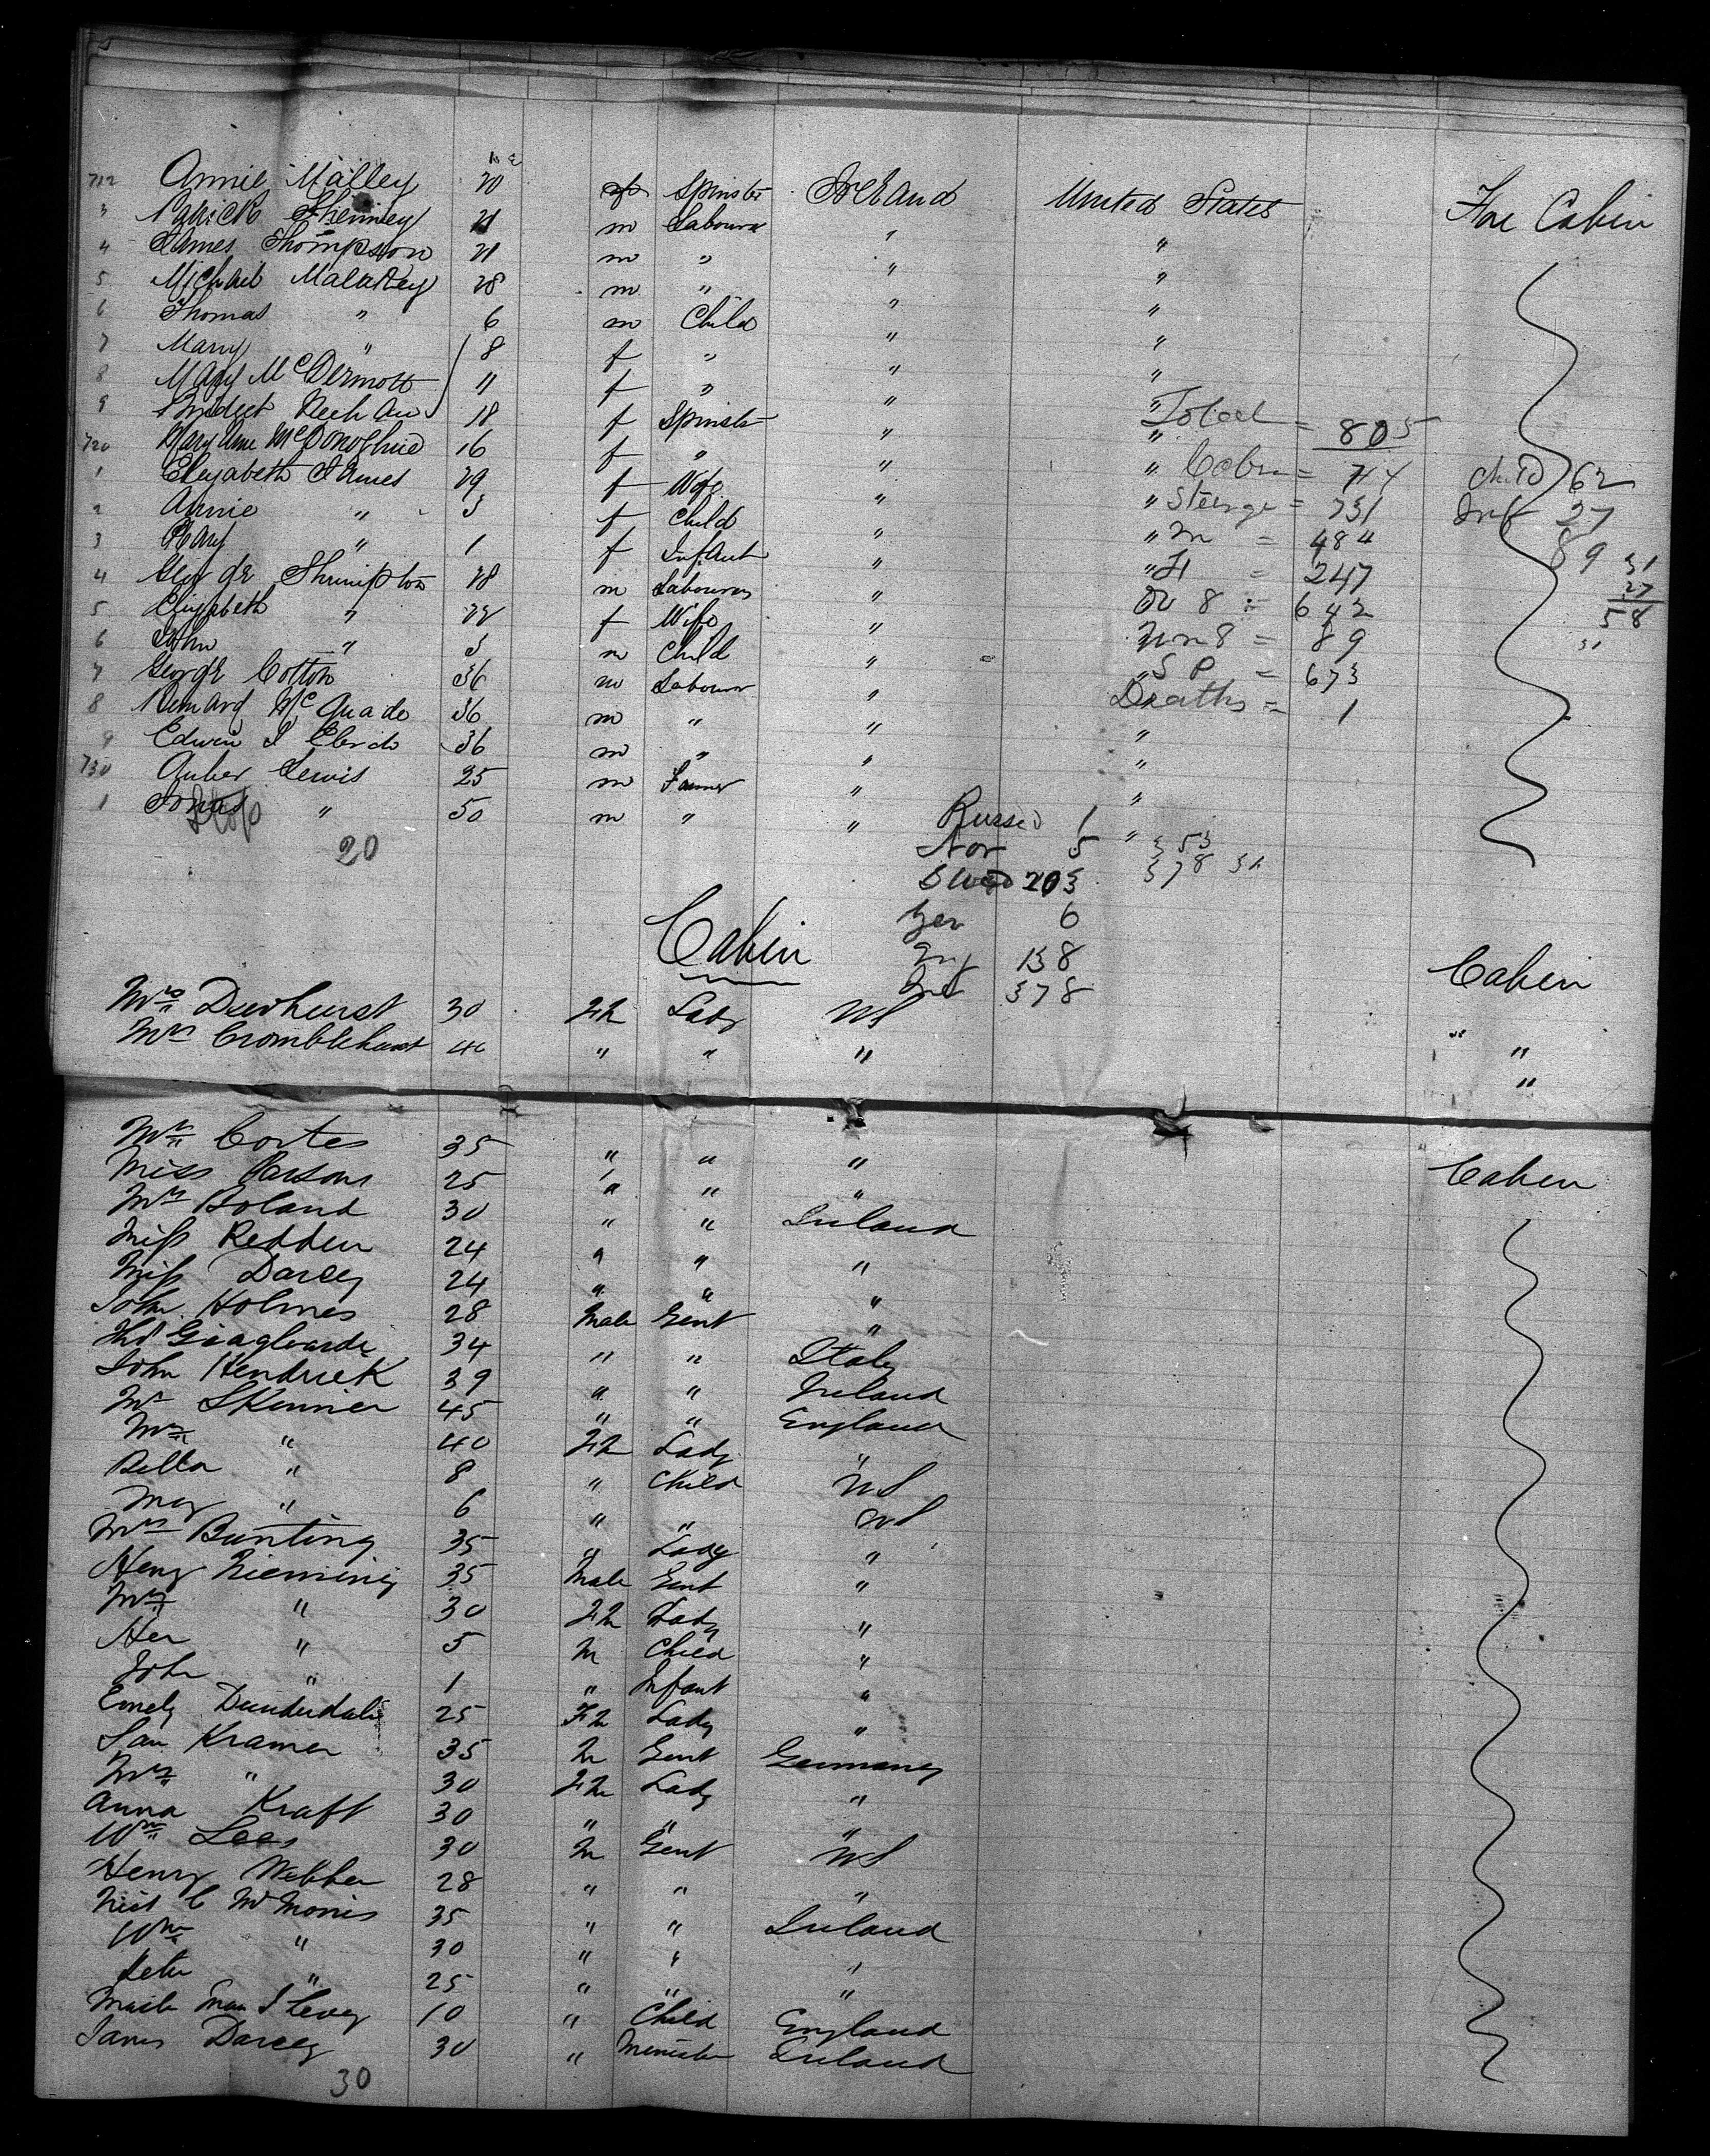 712 Annie Malley 20 f Spinster Ireland United States For Cabin
3 Patrick Skenney 21 m Labourer " "
4 James Thompson 21 m " " "
5 Michael Malarkey 28 m " " "
6 Thomas " 6 m Child " "
7 Mary " 8 f " " "
8 Mary McDermott 11 f " " "
9 Bridget 18 f Spinster " "
720 Mary Ann McDonoghue 16 f " " "
1 Elizabeth James 29 f Wife " "
2 Annie " 3 f Child " "
3 Mary " 1 f Infant " "
4 George Shrimpton 28 m Labourer " "
5 Elizabeth " 22 f Wife " "
6 John " 3 m Child " "
7 George Cotton 36 m Labourer " "
8 Bernard McQuade 36 m " " "
9 Edwin J 36 m " " "
730 Lewis 25 m Farmer " "
1 " 50 m " " "
20
Total = 805
Cabin = 74
Steerge = 731
m = 484
F = 247
Ov 8 = 642
Un 8 = 89
S P = 673
Deaths = 1
Child 62
Inf 27
89
31
27
58
31
Russia 1
Nor 5
Swed 203
Ger 6
Eng 138
Ire 378
353
378 31
Cabin
Mrs Dewhurst 30 Fm Lady US Cabin
Mrs Cromblehurst 40 " " " " "
"
Mrs Cortes 35 " " " Cabin
Miss Parsons 25 " " "
Mrs Boland 30 " " Ireland
Miss Redden 24 " " "
Miss Darcey 24 " " "
John Holmes 28 Male Gent "
34 " " Italy
John Hendrick 39 " " Ireland
Mr Skinner 45 " " England
Mrs " 40 Fm Lady "
Bella " 8 " Child US
May " 6 " " US
Mrs Bunting 35 " Lady "
Henry Nieming 35 Male Gent "
Mrs " 30 Fm Lady "
Hen " 5 M Child "
John " 1 " Infant "
Emely Dunderdale 25 Fm Lady "
Sam Kramer 35 M Gent Germany
Mrs " 30 Fm Lady "
Anna Kraft 30 " " "
Wm Lees 30 M Gent US
Henry Webber 28 " " "
C McMorris 35 " " Ireland
Wm " 30 " " "
Peter " 25 " " "
10 " Child England
James Darcey 30 " Minister Ireland
30